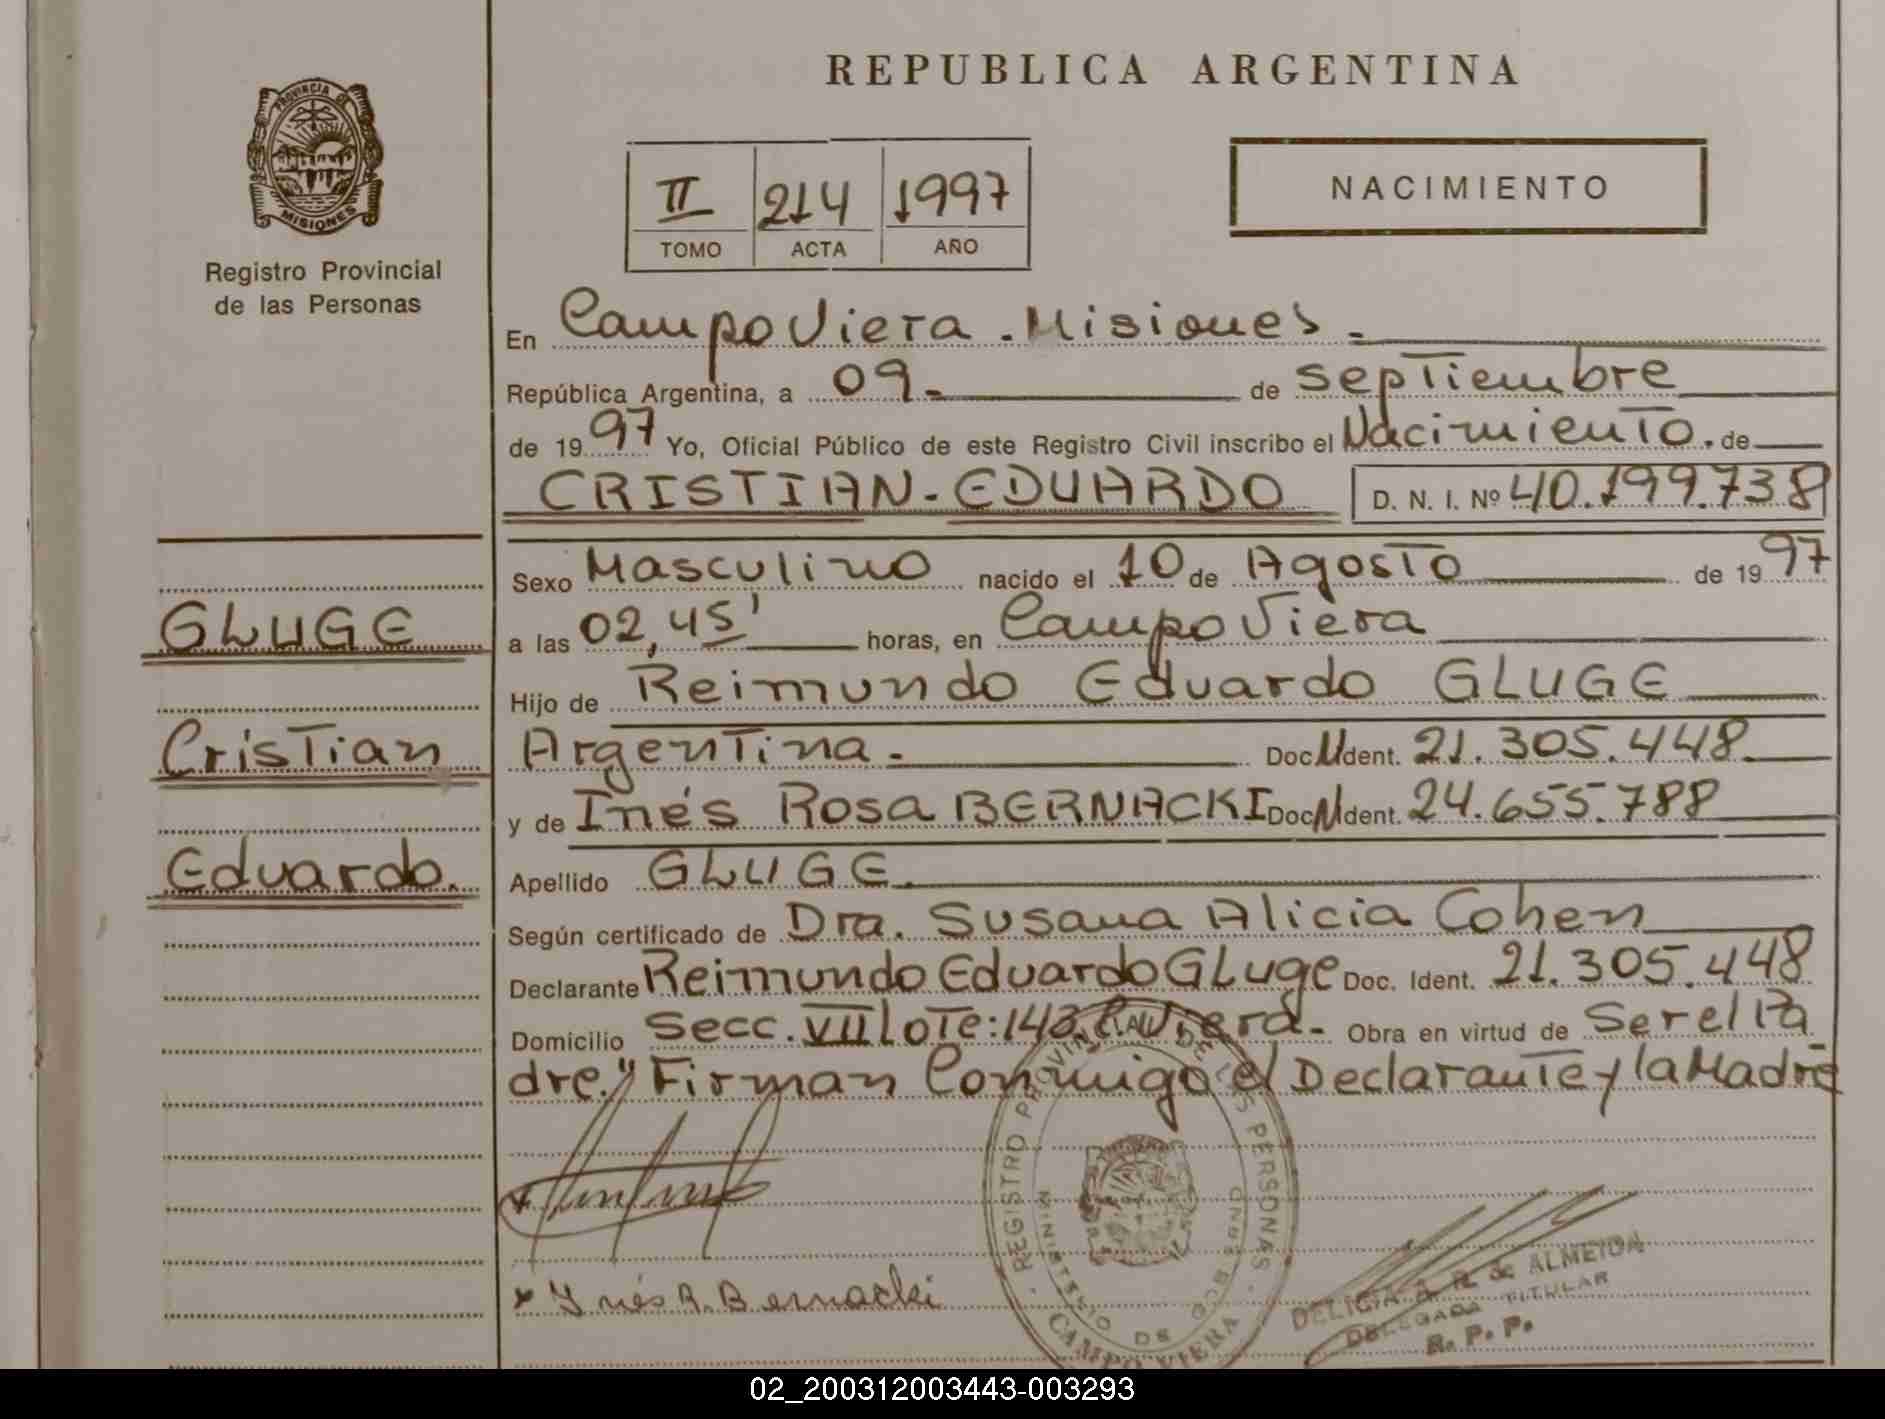 REPUBLICA ARGENTINA
PROVINCIA DE
MISIONES
Registro Provincial
de las Personas
II 214 1997
TOMO ACTA AÑO
NACIMIENTO
En Campo Viera - Misiones.-
República Argentina, a 09.- de septiembre
de 1997 Yo, Oficial Público de este Registro Civil inscribo el Nacimiento. de
CRISTIAN - EDUARDO D. N. I. Nº 40.199.738
Sexo Masculino nacido el 10 de Agosto de 1997
a las 02,45' horas, en Campo Viera
Hijo de Reimundo Eduardo GLUGE
Argentina.- Doc. Ident. 21.305.448.
y de Inés Rosa BERNACKI Doc. Ident. 24.655.788
Apellido GLUGE.
Según certificado de Dra. Susana Alicia Cohen
Declarante Reimundo Eduardo Gluge Doc. Ident. 21.305.448
Domicilio Secc. VII lote: 143 C. Viera.- Obra en virtud de Ser el Pa
dre." Firman Conmigo el Declarante y la Madre
GLUGE
Cristian
Eduardo.
x Inés R. Bernacki
REGISTRO PROVINCIAL DE LAS PERSONAS
MINISTERIO DE GOBIERNO
CAMPO VIERA
DELICIA A. R. de ALMEIDA
DELEGADA TITULAR
R. P. P.
02_200312003443-003293